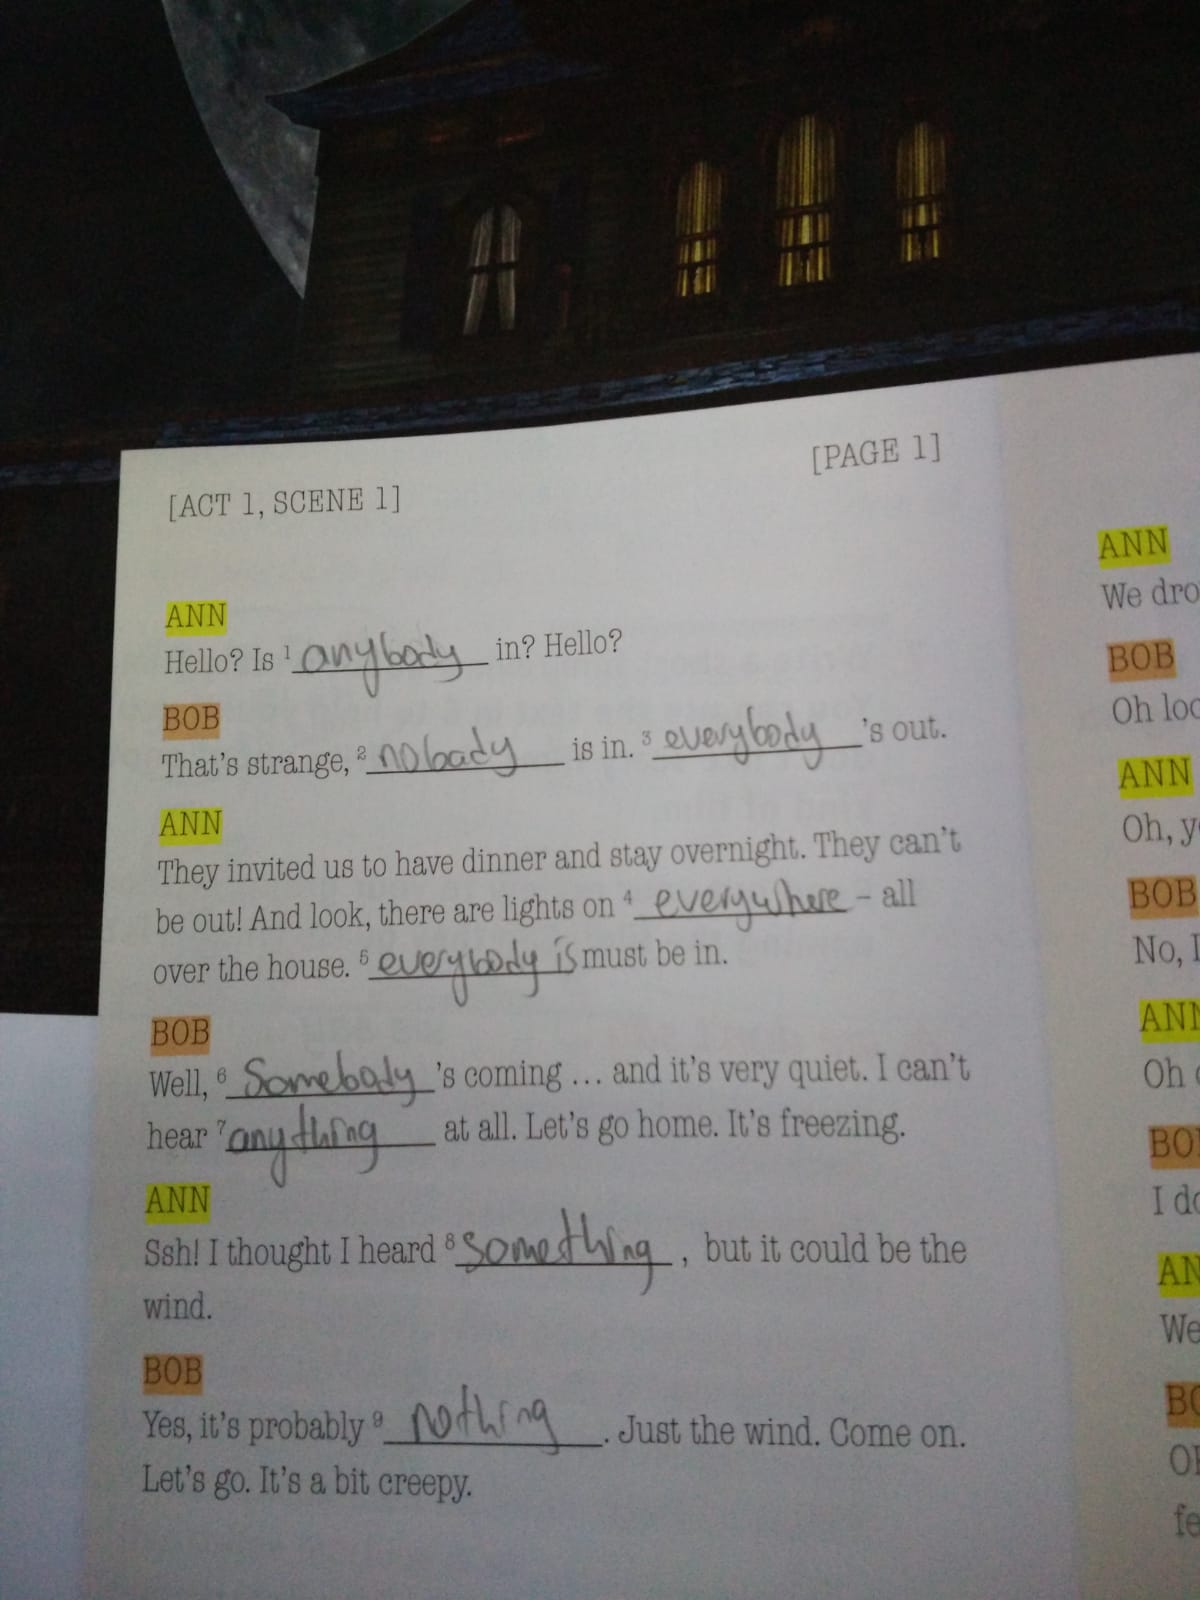 [PAGE 1]
[ACT 1, SCENE 1]
ANN
Hello? Is 1 anybody in? Hello?
BOB
That's strange, 2 nobady is in. 3 everybody 's out.
ANN
They invited us to have dinner and stay overnight. They can't
be out! And look, there are lights on 4 everywhere - all
over the house. 5 everybody is must be in.
BOB
Well, 6 Somebady 's coming ... and it's very quiet. I can't
hear 7 anything at all. Let's go home. It's freezing.
ANN
Ssh! I thought I heard 8 something , but it could be the
wind.
BOB
Yes, it's probably 9 nothing . Just the wind. Come on.
Let's go. It's a bit creepy.
ANN
We dro
BOB
Oh loo
ANN
Oh, y
BOB
No, I
ANN
Oh
BO
I do
AN
We
BO
fe